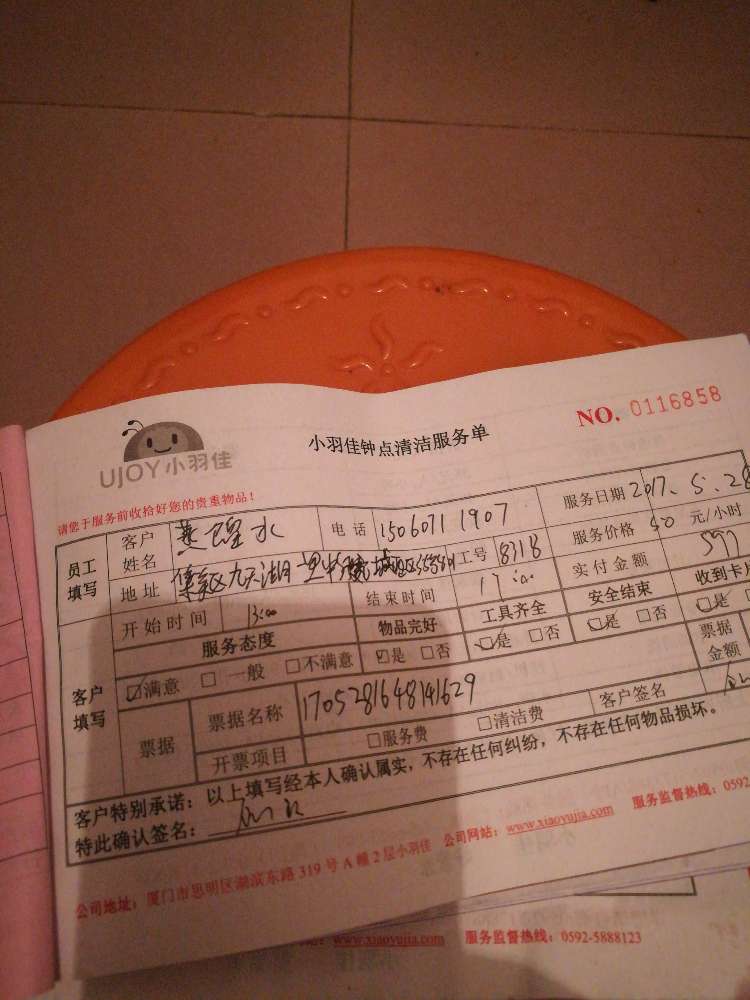 UJOY小羽佳
小羽佳钟点清洁服务单
NO. 0116858
请您于服务前收拾好您的贵重物品!
员工填写 客户姓名 水 电话 15060711907 服务日期 2017.5.28
地址 集美区九天湖 工号 8318 服务价格 50 元/小时
开始时间 13:00 结束时间 17:00 实付金额
客户填写 服务态度 物品完好 工具齐全 安全结束 收到卡片
☑满意 □一般 □不满意 ☑是 □否 ☑是 □否 ☑是 □否 ☑是
票据 票据名称 1705281648141629 客户签名 票据金额
开票项目 □服务费 □清洁费
客户特别承诺:以上填写经本人确认属实,不存在任何纠纷,不存在任何物品损坏。
特此确认签名:
公司地址:厦门市思明区湖滨东路 319 号 A 幢 2 层小羽佳 公司网站:www.xiaoyujia.com 服务监督热线:0592
www.xiaoyujia.com 服务监督热线:0592-5888123